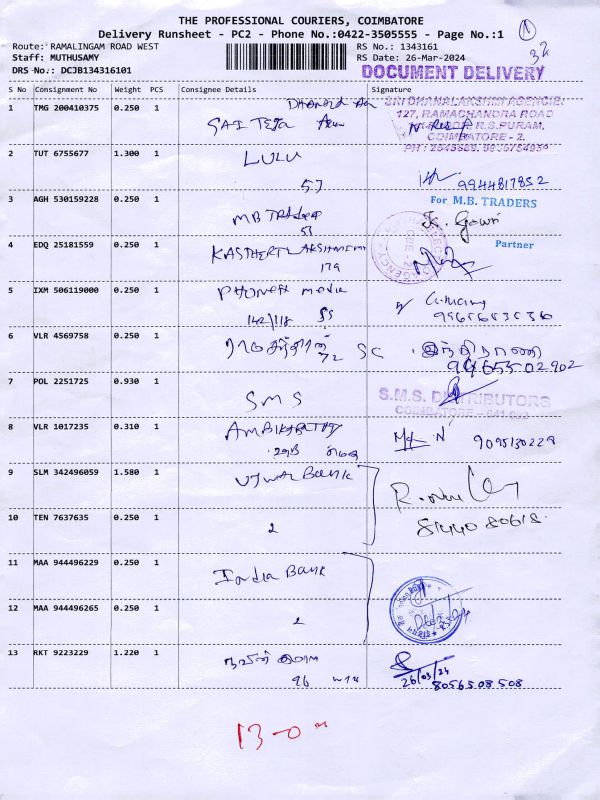 THE PROFESSIONAL COURIERS, COIMBATORE
Delivery Runsheet - PC2 - Phone No.:0422-3505555 - Page No.:1
1
Route: RAMALINGAM ROAD WEST
RS No.: 1343161
32
Staff: MUTHUSAMY
RS Date: 26-Mar-2024
DRS No.: DCJB134316101
DOCUMENT DELIVERY
S No Consignment No Weight PCS Consignee Details Signature
SRI DHANALAKSHMI AGENCIE
127, RAMACHANDRA ROAD
R.S.PURAM,
COIMBATORE - 2.
1 TMG 200410375 0.250 1 SAI TEJA
2 TUT 6755677 1.300 1 LULU
57 9944817852
3 AGH 530159228 0.250 1 MB Traders
53
For M.B. TRADERS
K. Gowri
Partner
4 EDQ 25181559 0.250 1
179
5 IXM 506119000 0.250 1 Phoneix media
142/118
6 VLR 4569758 0.250 1 72 SC இந்திராணி
9965502902
7 POL 2251725 0.930 1 SMS
S.M.S. DISTRIBUTORS
COIMBATORE - 641 002
8 VLR 1017235 0.310 1
9095130229
9 SLM 342496059 1.580 1 Ujwar Bank
8144080618
10 TEN 7637635 0.250 1 2
11 MAA 944496229 0.250 1 India Bank
12 MAA 944496265 0.250 1 2
13 RKT 9223229 1.220 1
96
26/03/24
8056508508
13-0